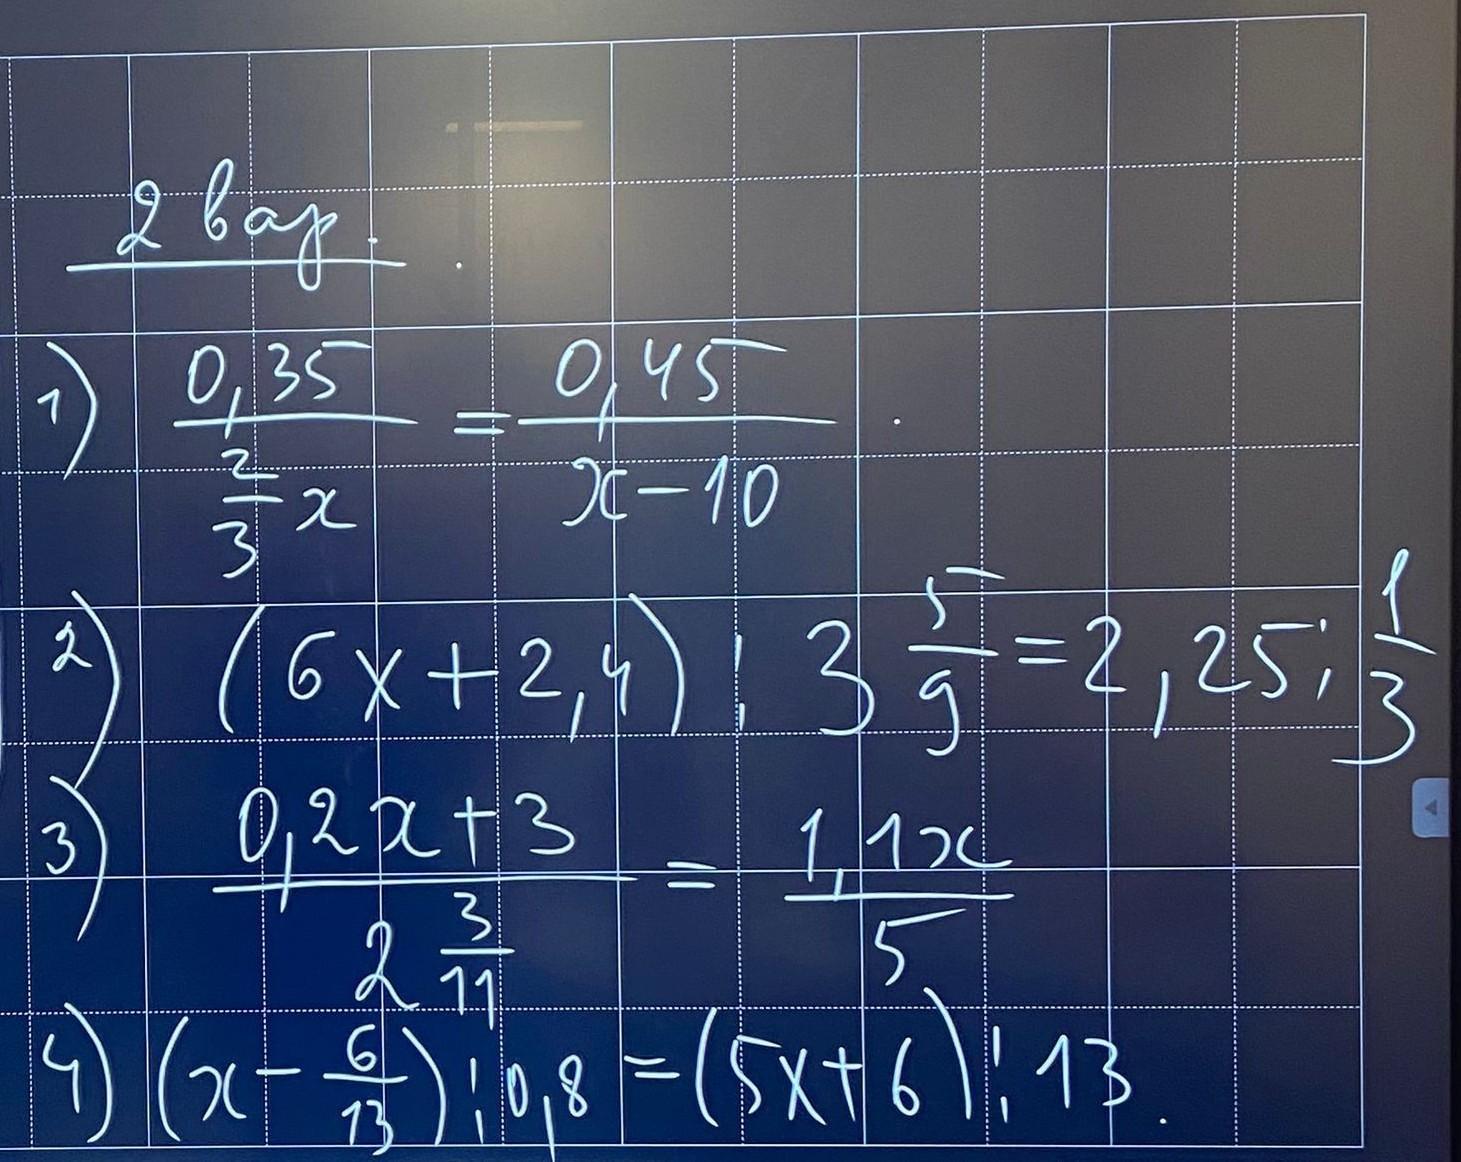 2 вар.
1) 0,35 / (2/3 x) = 0,45 / (x - 10)
2) (6x + 2,4) : 3 5/9 = 2,25 : 1/3
3) (0,2x + 3) / (2 3/11) = 1,1x / 5
4) (x - 6/13) : 0,8 = (5x + 6) : 13.